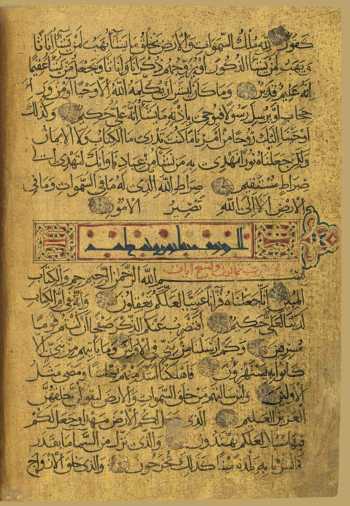 كفور لله ملك السموات والأرض يخلق ما يشاء يهب لمن يشاء إناثا
ويهب لمن يشاء الذكور أو يزوجهم ذكرانا وإناثا ويجعل من يشاء عقيما
إنه عليم قدير وما كان لبشر أن يكلمه الله إلا وحيا أو من وراء
حجاب أو يرسل رسولا فيوحي بإذنه ما يشاء إنه علي حكيم وكذلك
أوحينا إليك روحا من أمرنا ما كنت تدري ما الكتاب ولا الإيمان
ولكن جعلناه نورا نهدي به من نشاء من عبادنا وإنك لتهدي إلى
صراط مستقيم صراط الله الذي له ما في السموات وما في
الأرض ألا إلى الله تصير الأمور
بسم الله الرحمن الرحيم حم والكتاب
المبين إنا جعلناه قرآنا عربيا لعلكم تعقلون وإنه في أم الكتاب
لدينا لعلي حكيم أفنضرب عنكم الذكر صفحا أن كنتم قوما
مسرفين وكم أرسلنا من نبي في الأولين وما يأتيهم من نبي إلا
كانوا به يستهزئون فأهلكنا أشد منهم بطشا ومضى مثل
الأولين ولئن سألتهم من خلق السموات والأرض ليقولن خلقهن
العزيز العليم الذي جعل لكم الأرض مهدا وجعل لكم
فيها سبلا لعلكم تهتدون والذي نزل من السماء ماء بقدر
فأنشرنا به بلدة ميتا كذلك تخرجون والذي خلق الأزواج